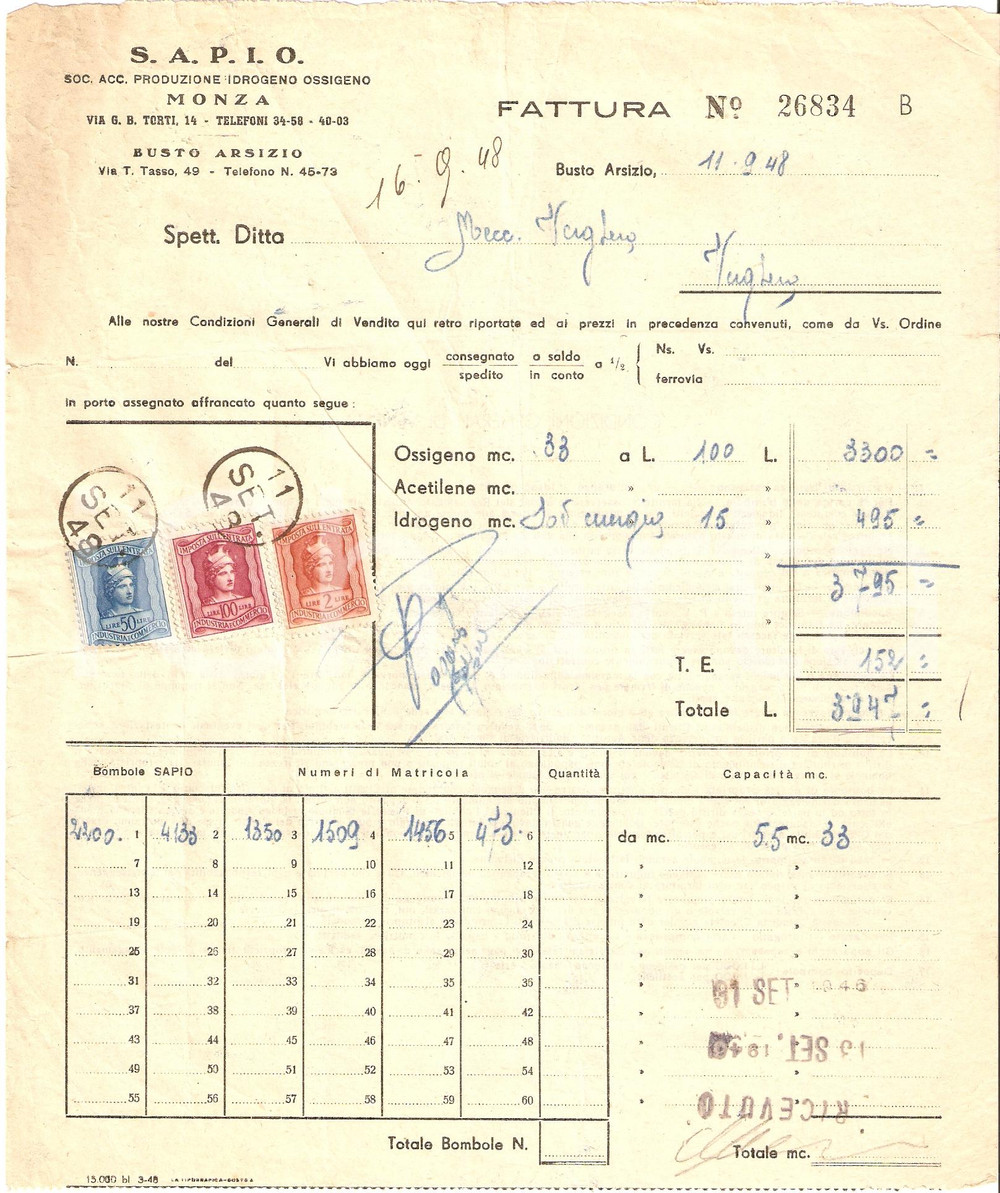 S. A. P. I. O.
SOC. ACC. PRODUZIONE IDROGENO OSSIGENO
MONZA
VIA G. B. TORTI, 14 - TELEFONI 34-58 - 40-03
BUSTO ARSIZIO
Via T. Tasso, 49 - Telefono N. 45-73
FATTURA Nº 26834 B
16-9.48
Busto Arsizio, 11.9.48
Spett. Ditta Mecc.
Alle nostre Condizioni Generali di Vendita qui retro riportate ed ai prezzi in precedenza convenuti, come da Vs. Ordine
N. del Vi abbiamo oggi consegnato spedito a saldo in conto a ½ { Ns. Vs. ferrovia
in porto assegnato affrancato quanto segue :
Ossigeno mc. 33 a L. 100 L. 3300 =
Acetilene mc. » »
Idrogeno mc. 15 » 495 =
»
» 3795 =
»
T. E. 152 =
Totale L. 3947 =
11 SET 48
11 SET 48
IMPOSTA SULL'ENTRATA
LIRE 50 LIRE
INDUSTRIA E COMMERCIO
IMPOSTA SULL'ENTRATA
LIRE 100 LIRE
INDUSTRIA E COMMERCIO
IMPOSTA SULL'ENTRATA
LIRE 2 LIRE
INDUSTRIA E COMMERCIO
Bombole SAPIO Numeri di Matricola Quantità Capacità mc.
2200. 1 4133 2 1350 3 1509 4 1456 5 473. 6 da mc. 5.5 mc. 33
7 8 9 10 11 12 » »
13 14 15 16 17 18 » »
19 20 21 22 23 24 » »
25 26 27 28 29 30 » »
31 32 33 34 35 36 » »
37 38 39 40 41 42 » »
43 44 45 46 47 48 » »
49 50 51 52 53 54 » »
55 56 57 58 59 60 » »
SET
13 SET. 194
RICEVUTO
Totale Bombole N. Totale mc.
15.000 bl 3-48